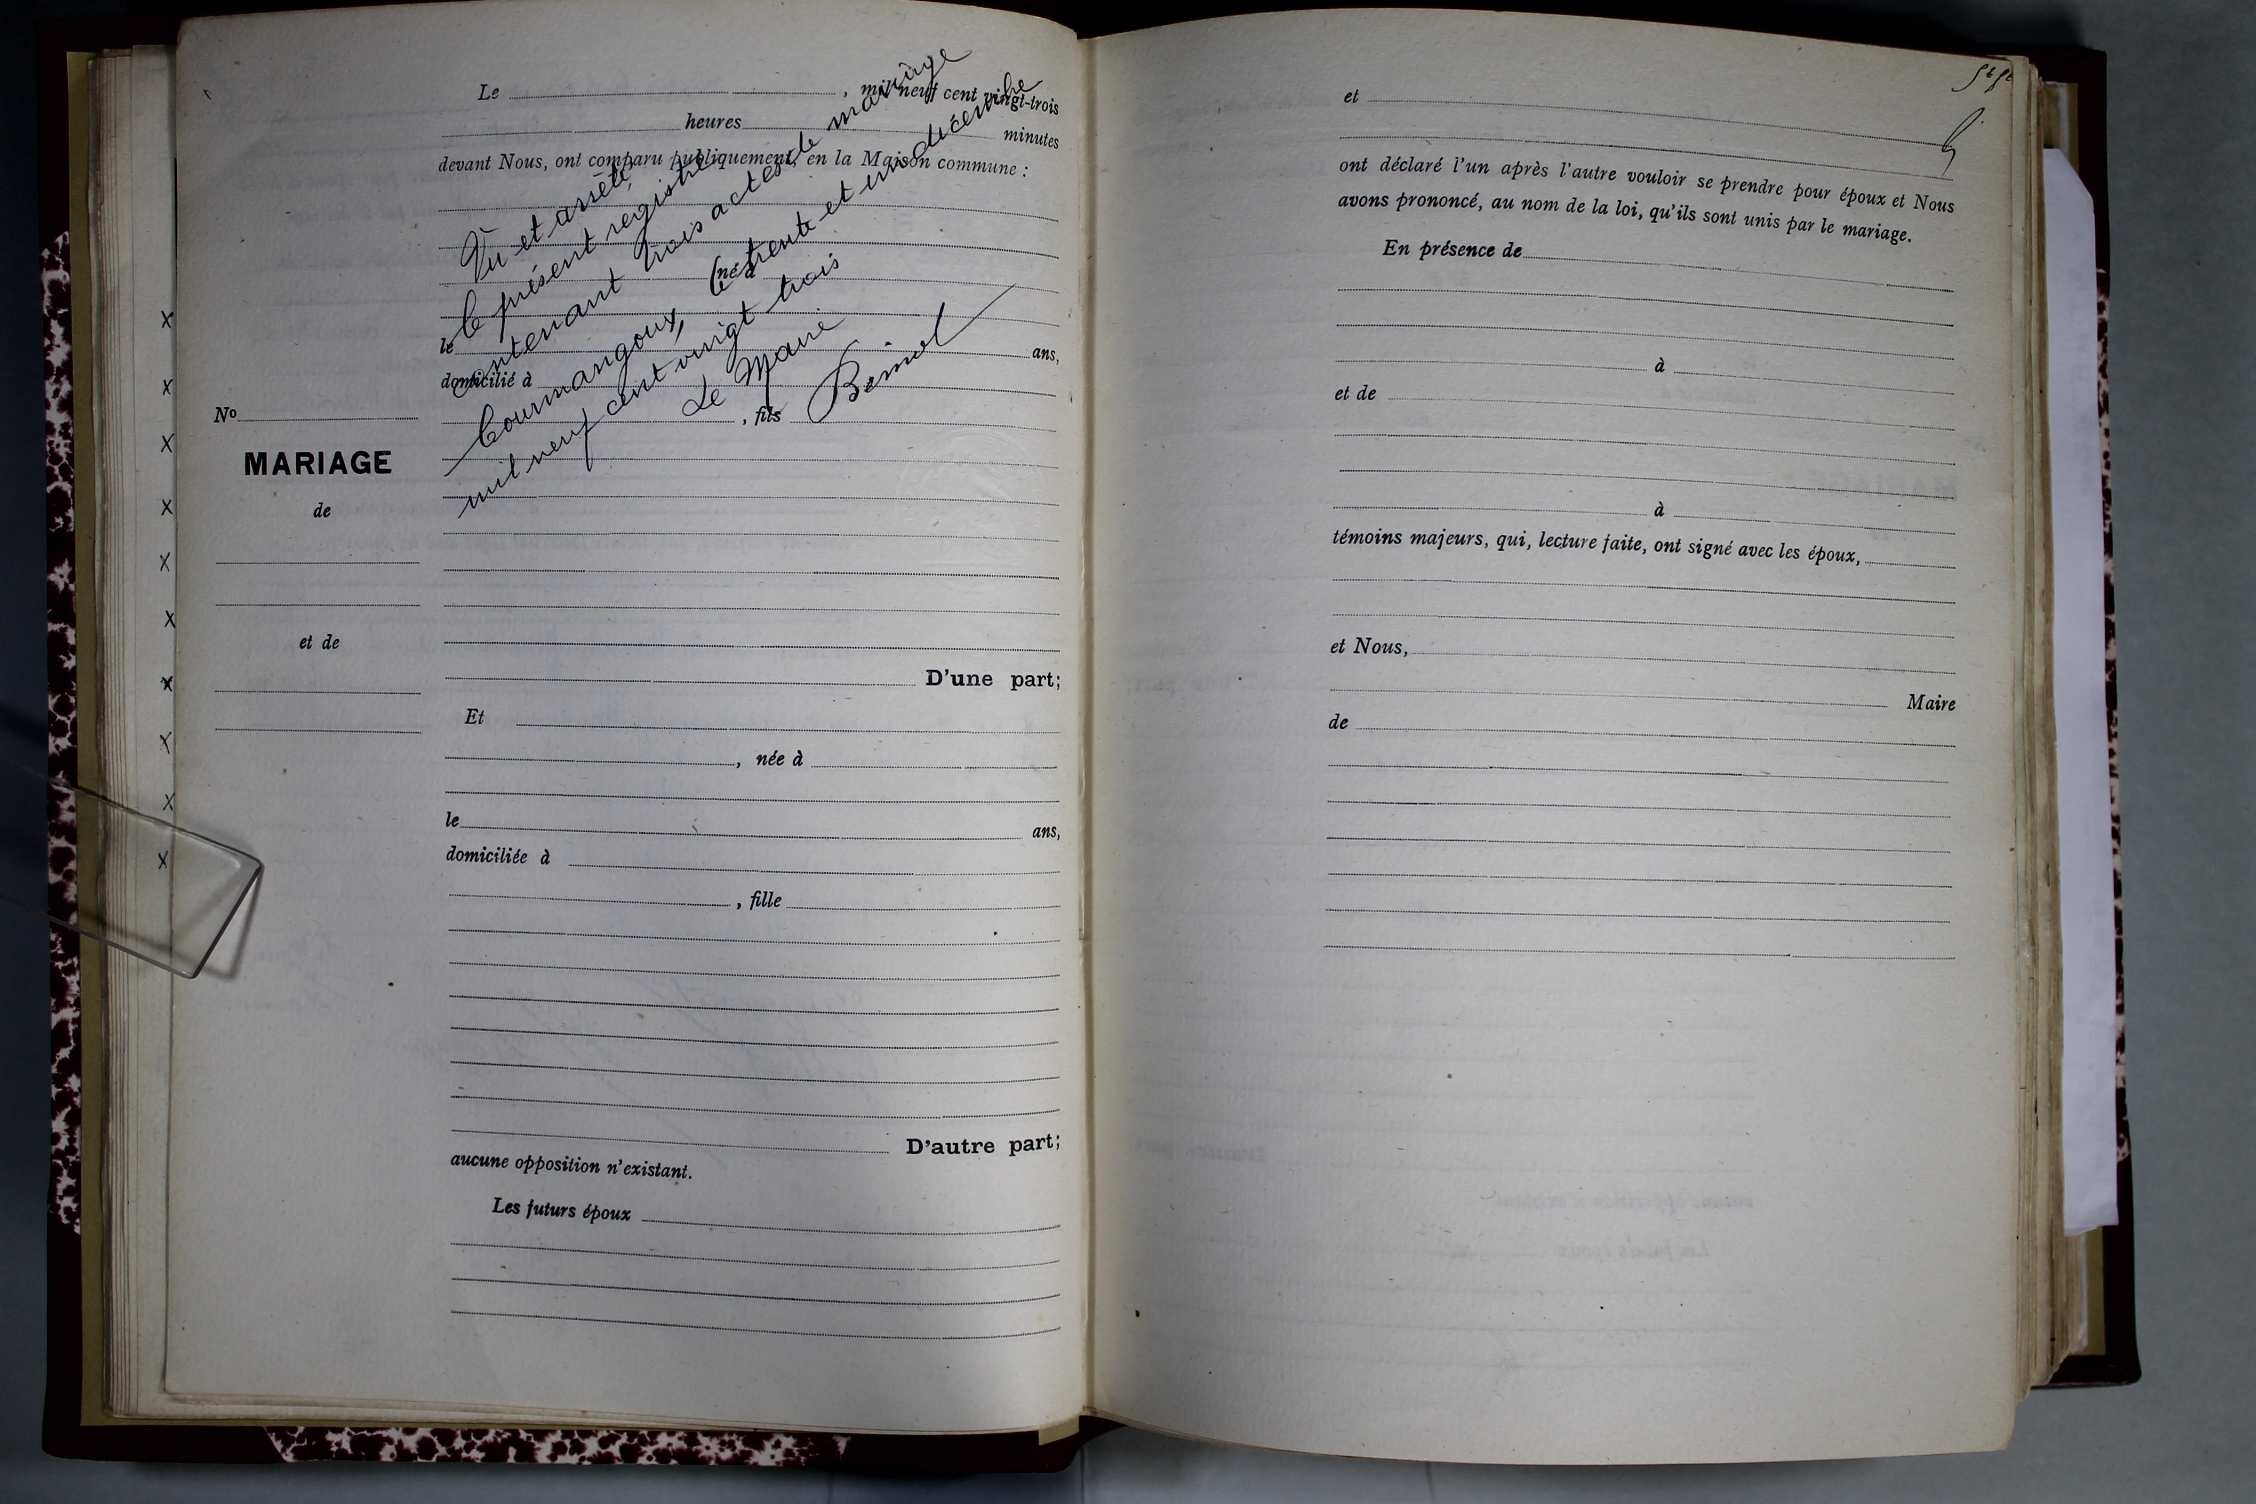 Le , mil neuf cent vingt-trois
heures minutes
devant Nous, ont comparu publiquement, en la Maison commune :
Vu et arrêté
le présent registre
contenant trois actes de mariage
Courmangoux, le trente et un décembre
mil neuf cent vingt trois
Le Maire
né à
le ans,
domicilié à
, fils
No
MARIAGE
de
et de
D'une part;
Et
, née à
le ans,
domiciliée à
, fille
D'autre part;
aucune opposition n'existant.
Les futurs époux
et
ont déclaré l'un après l'autre vouloir se prendre pour époux et Nous
avons prononcé, au nom de la loi, qu'ils sont unis par le mariage.
En présence de
à
et de
à
témoins majeurs, qui, lecture faite, ont signé avec les époux,
et Nous,
Maire
de